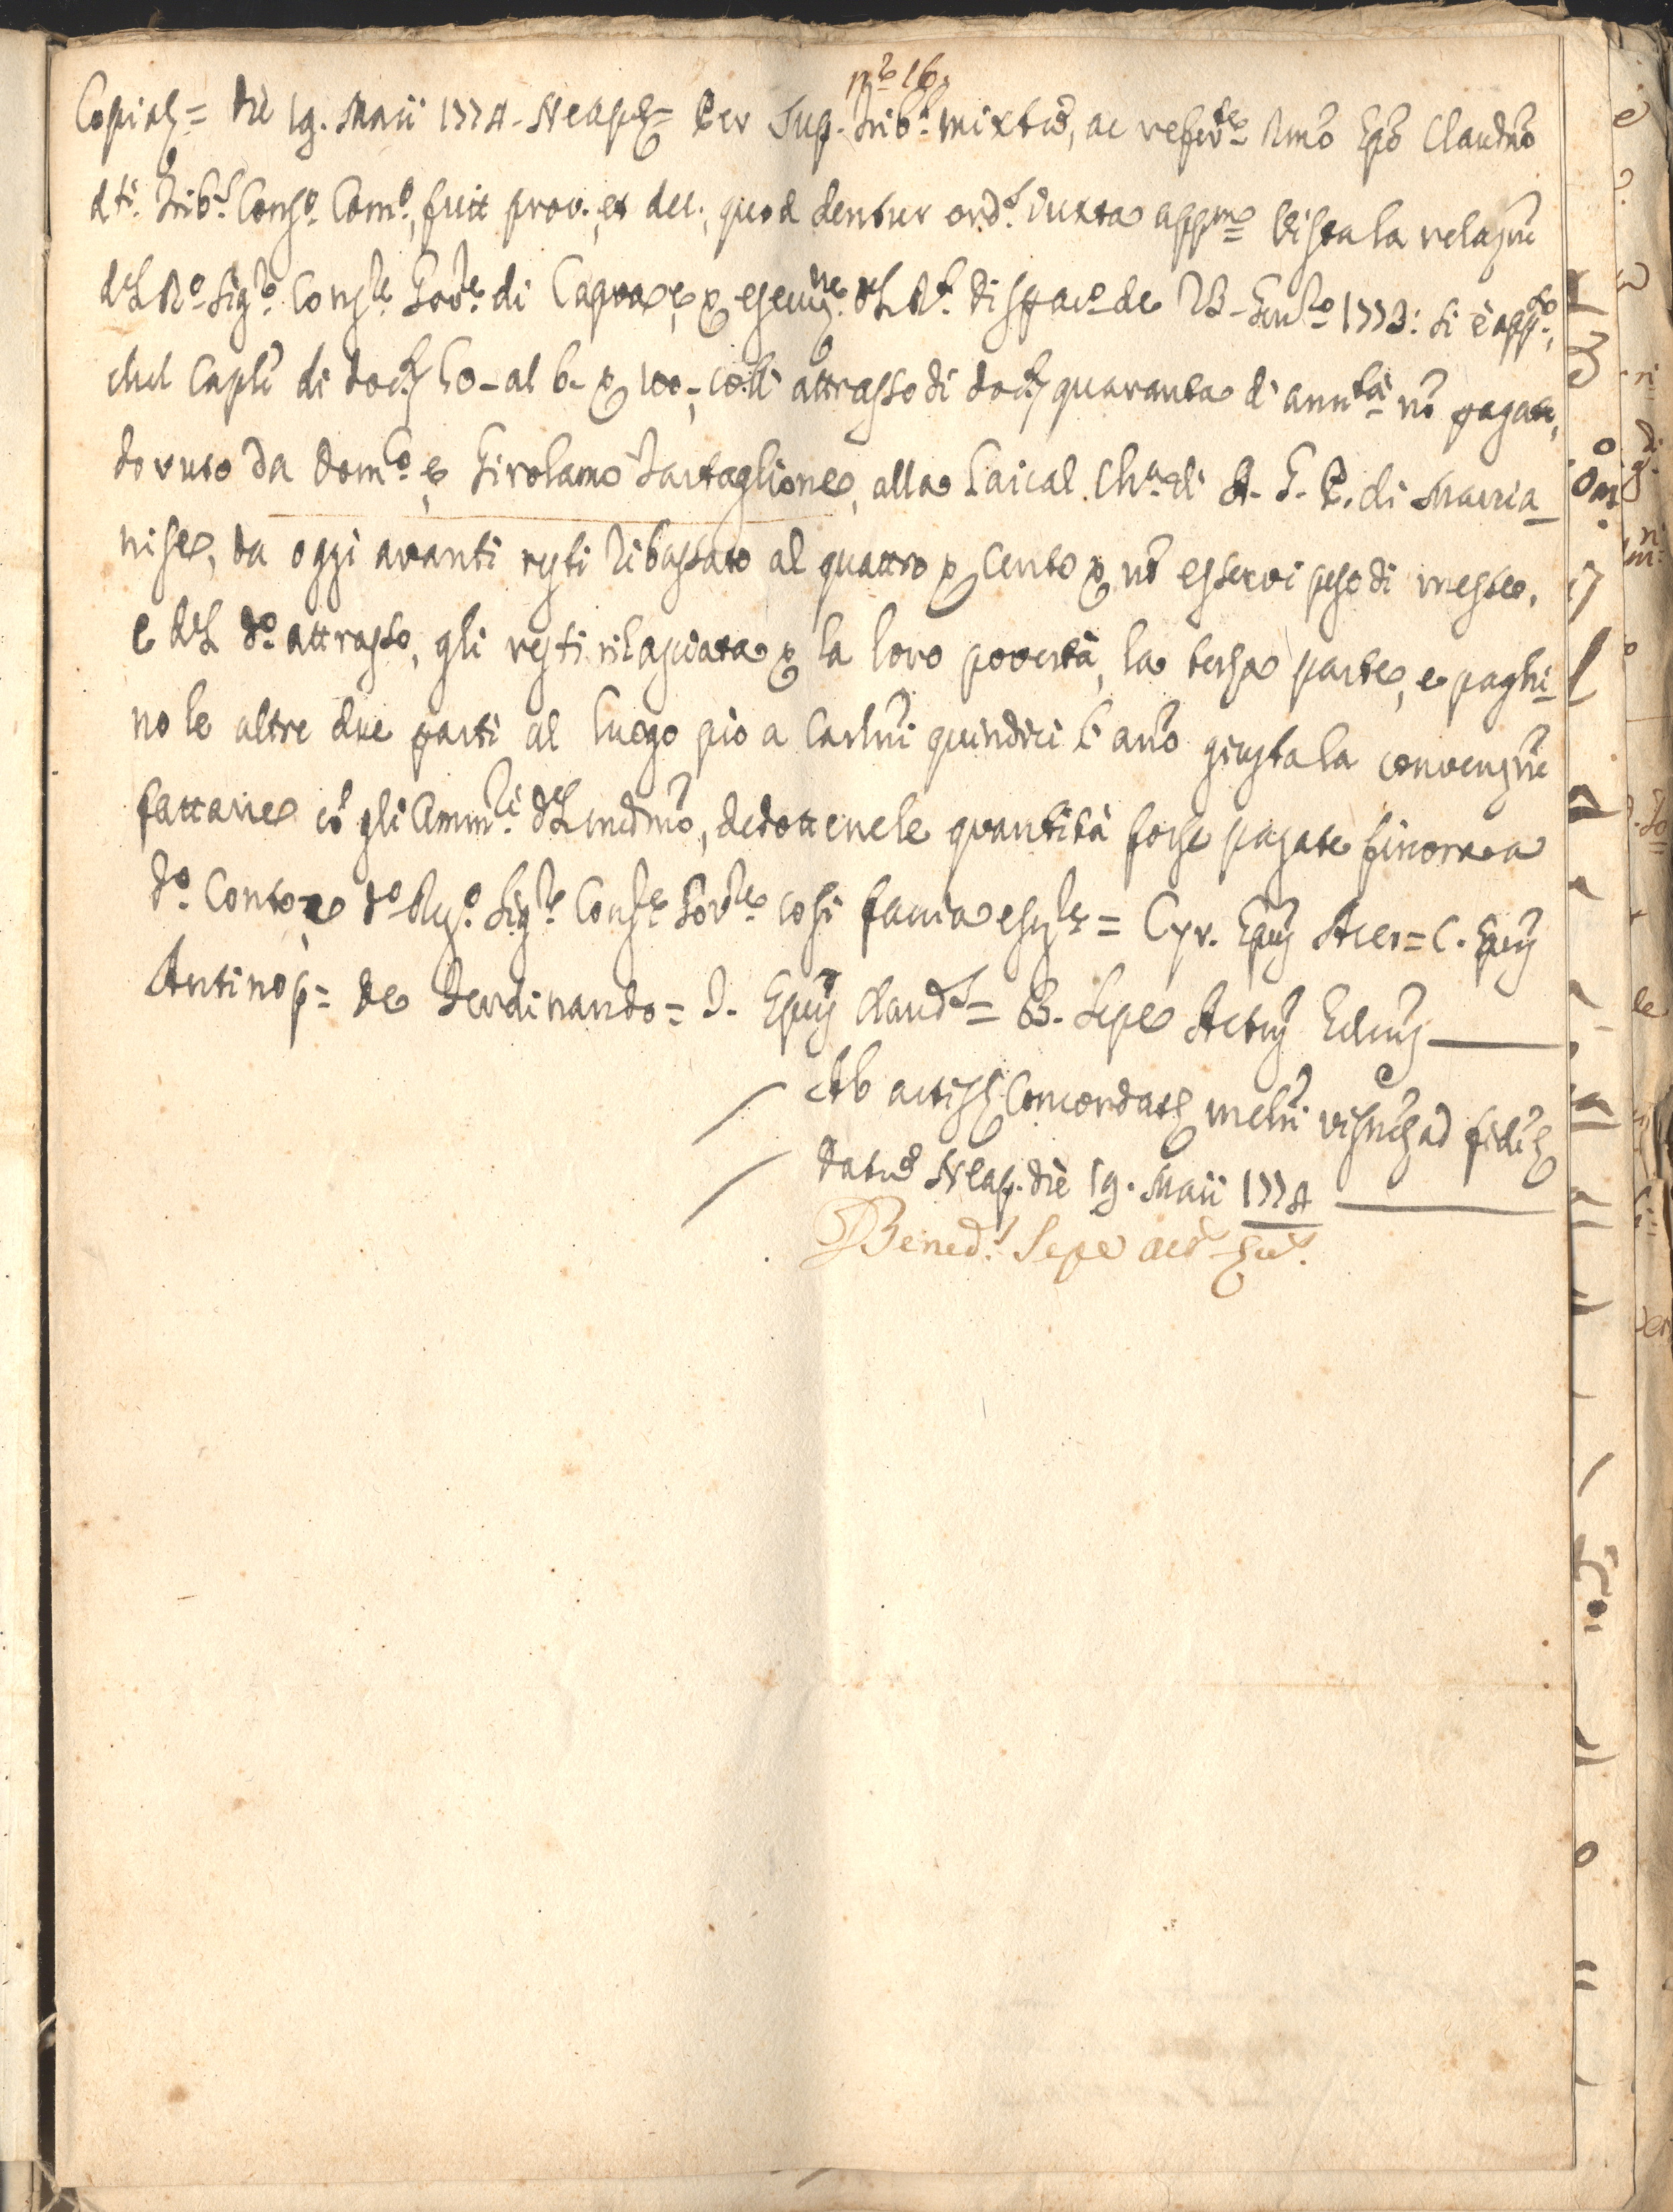 n.º 16.
Copia = Die 19. Maii 1774 - Neap. = Per Sup. Trib.l mixtū, ac refer.te Rmo Epō Claudnō
dti. Trib.l Cons.o Com.o, fuit prov. et dec., quod dentur ord.s iuxta app.m = Vista la relazne
del R.o Sig.re Cons.re Gov.re di Capua, e p esecuz.ne del R.l dispac.o de 23 - Gen.ro 1773: si è app.to,
chel Caplē di doc.ti 50 - al 6 - p 100 -, coll' attrasso di doc.ti quaranta d' ann.tà nō pagate,
dovuto da Dom.co, e Girolamo Tartaglione, alla Laical. Ch.a di A. G. P. di Marcia-
nise, da oggi avanti resti ribassato al quattro p cento p nō esservi peso di messe,
e del d.o attrasso, gli resti rilasciata p la loro povertà, la terza parte, e paghi-
no le altre due parti al luogo pio a Carlini quindici l' anō giusta la convenzne
fattane cō gli Amm.ri del medmō, dedottene le quantità forse pagate finora a
d.o conto, e d.o Reg.o Sig.re Cons.re Gov.re così faccia eseg.re = Cyr. Epus Acer = C. Epus
Antinop = de Ferdinando = I. Epus Claud.s = B. Sepe Actus
Ab actis concordat melri
datū Neap. die 19. Maii 1774
Bened.s Sepe act.s